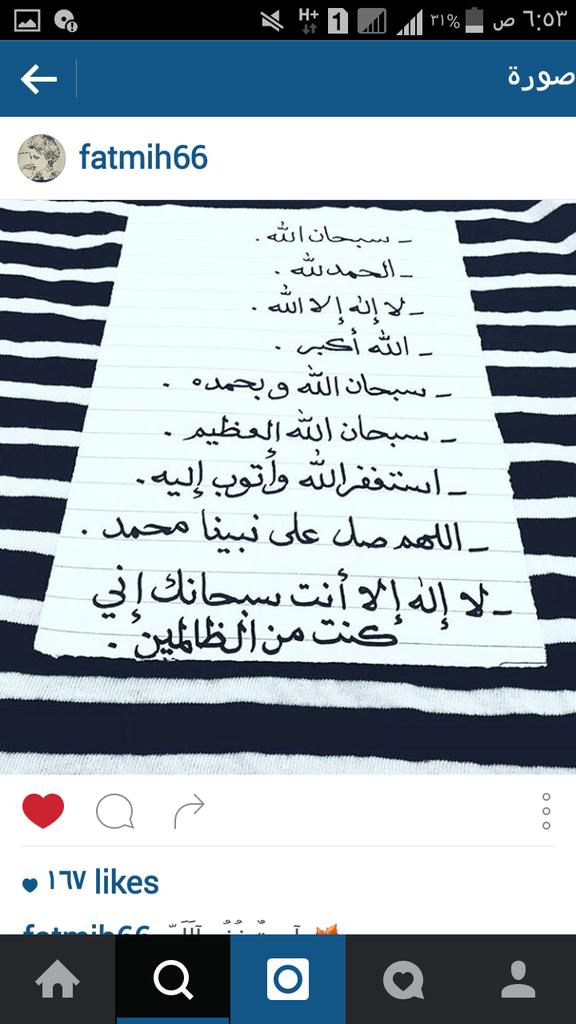 H+ 1 ٣١% ٦:٥٣ ص
صورة
fatmih66
- سبحان الله .
- الحمدلله .
- لا إله إلا الله .
- الله أكبر .
- سبحان الله وبحمده .
- سبحان الله العظيم .
- استغفرالله وأتوب إليه .
- اللهم صل على نبينا محمد .
- لا إله إلا أنت سبحانك إني
كنت من الظالمين .
١٦٧ likes
fatmih66